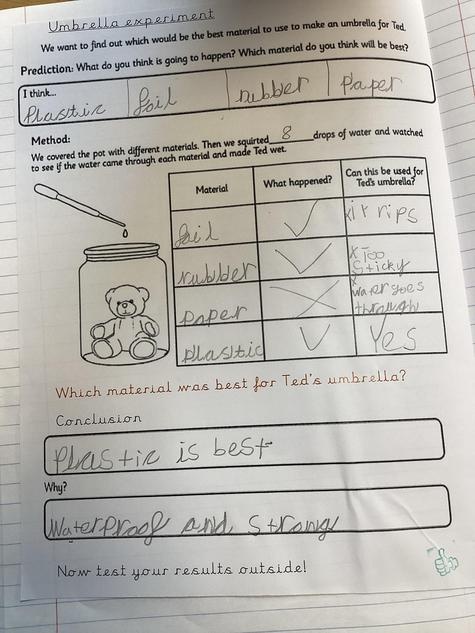 Umbrella experiment
We want to find out which would be the best material to use to make an umbrella for Ted.
Prediction: What do you think is going to happen? Which material do you think will be best?
I think...
Plastic foil rubber Paper
Method:
We covered the pot with different materials. Then we squirted 8 drops of water and watched
to see if the water came through each material and made Ted wet.
Material What happened? Can this be used for Ted's umbrella?
foil ✓ x it rips
rubber ✓ x Too Sticky
paper x x water goes through
plastic ✓ Yes
Which material was best for Ted's umbrella?
Conclusion
Plastic is best
Why?
Waterproof and strong
Now test your results outside!